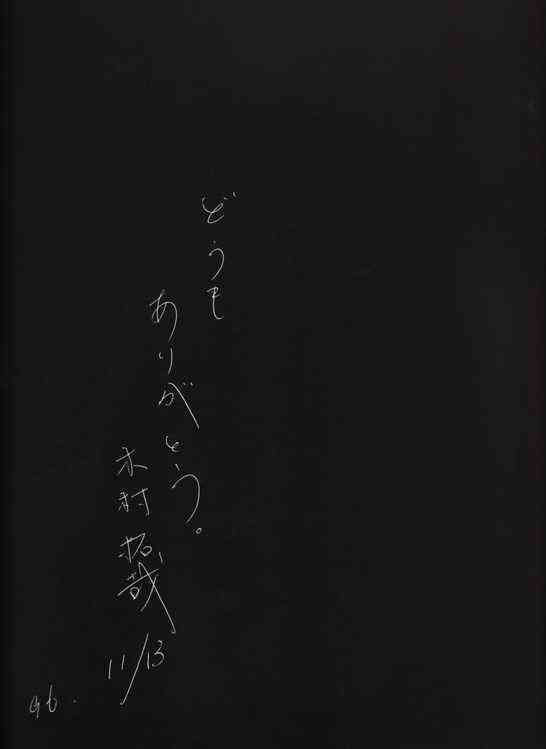 どうも
ありがとう。
木村拓哉
11/13
96.